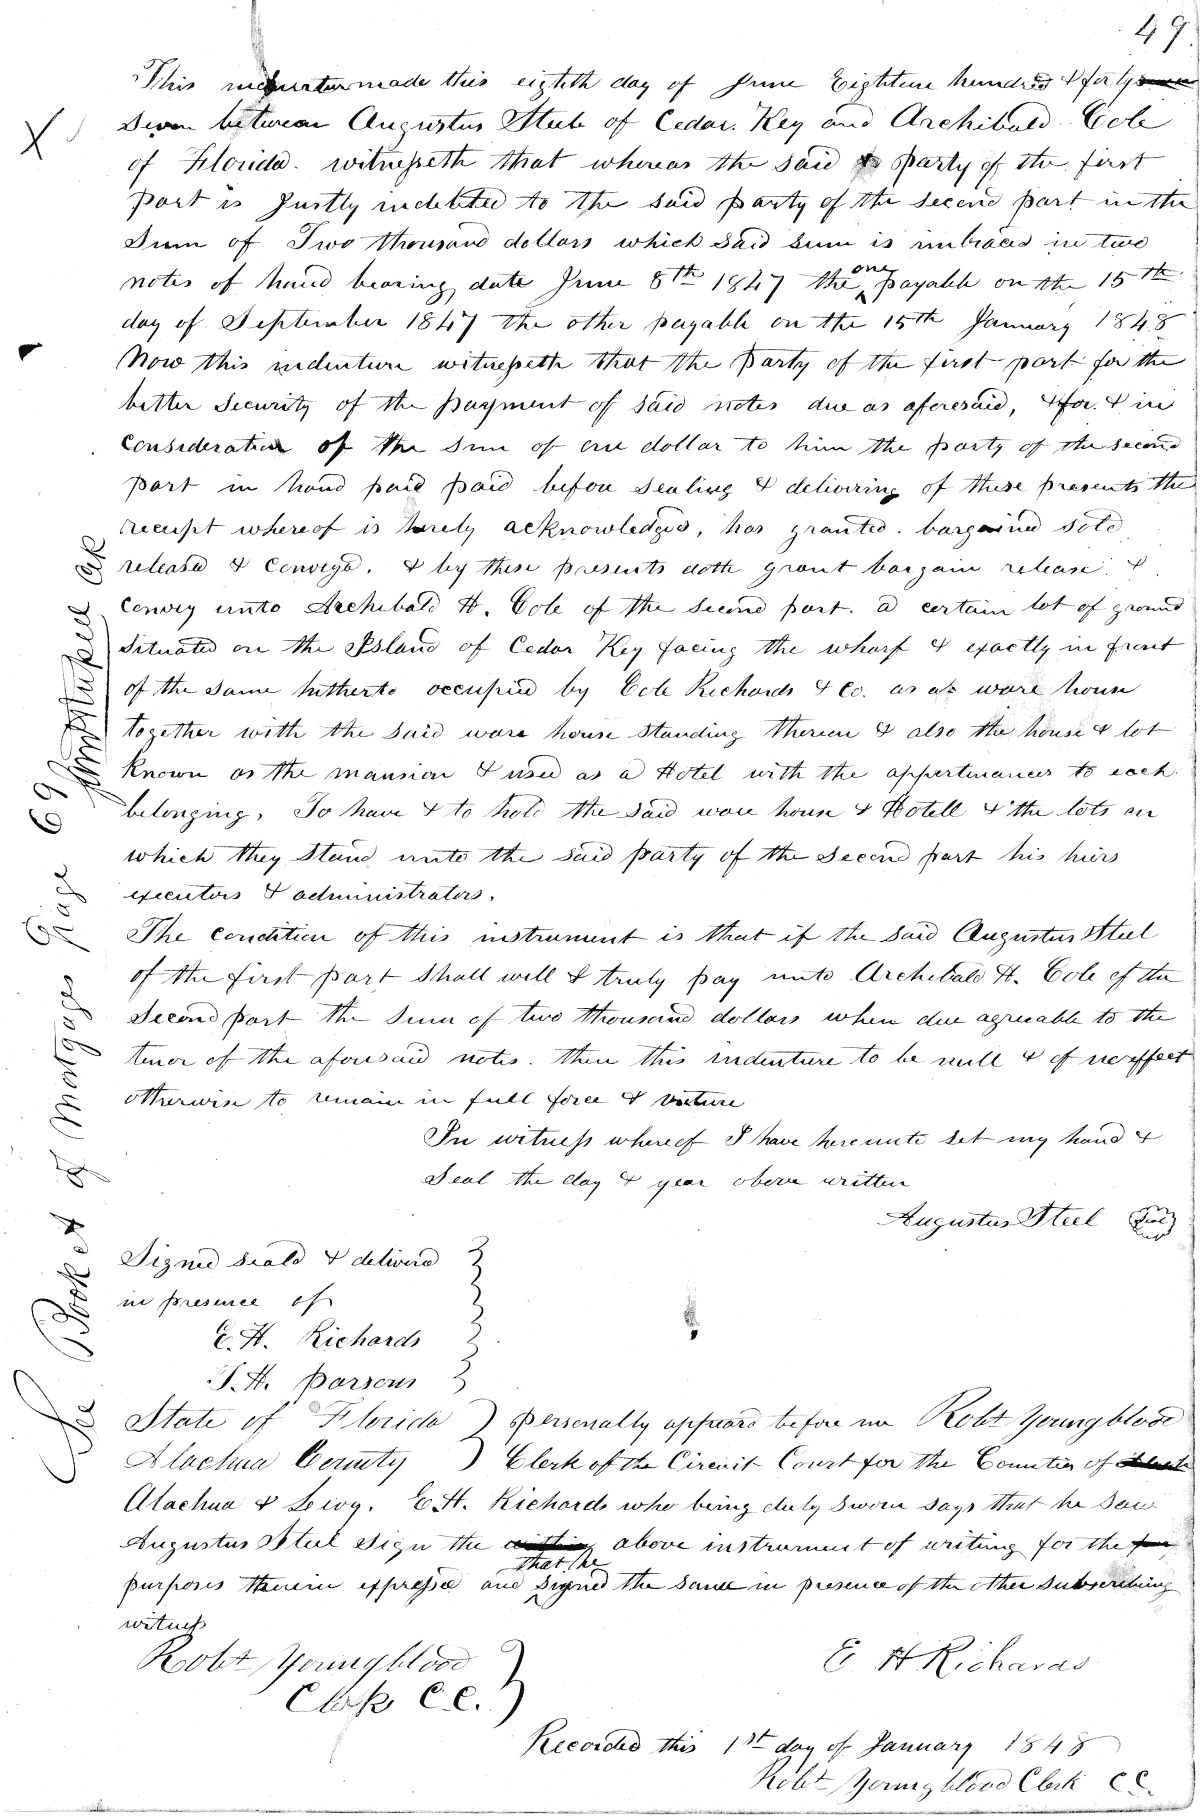 49.
This indenture made this eighth day of June Eighteen hundred & forty
Seven between Augustus Steele of Cedar. Key and Archibald Cole
of Florida. witnesseth that whereas the said party of the first
part is Justly indebted to the said party of the second part in the
Sum of Two thousand dollars which said sum is imbraced in two
notes of hand bearing date June 8th 1847 the one payable on the 15th
day of September 1847 the other payable on the 15th January 1848
Now this indenture witnesseth that the Party of the first part for the
better Security of the payment of said notes due as aforesaid, & for & in
Consideration of the sum of one dollar to him the party of the second
part in hand paid paid before sealing & delivering of these presents the
receipt whereof is hirely acknowledged, has granted. bargained sold
released & Conveyed. & by these presents doth grant bargain release. &
Convey unto Archibald H. Cole of the Second part. a certain lot of ground
Situated on the Island of Cedar Key facing the wharf & exactly in front
of the same hitherto occupied by Cole Richards & Co. as a ware house
together with the said ware house standing thereon & also the house & lot
Known as the mansion & used as a Hotel with the appertinances to each
belonging, To have & to hold the said ware house & Hotell & the lots on
which they Stand unto the said party of the Second part his hiers
executors & administrators.
The condition of this instrument is that if the said Augustus Steel
of the first part Shall will & truly pay unto Archibald H. Cole of the
Second part the Sum of two thousand dollars when due agreeable to the
tenor of the aforesaid notes. then this indenture to be null & of no effect
otherwise to remain in full force & virture
In witness whereof I have hereunto set my hand &
Seal the day & year above written
Augustus Steel Seal
Signed seald & deliverd
in presence of
E. H. Richards
T. H. Parsons
State of Florida ) personally appeard before me Robt Youngblood
Alachua County ) Clerk of the Circuit Court for the Counties of
Alachua & Levy. E. H. Richards who being duly sworn says that he saw
Augustus Steel sign the above instrument of writing for the
purposes therein expressed and that he signed the same in presence of the other subscribing
witness
Robt Youngblood
Clerk C.C.
E H Richards
Recorded this 1st day of January 1848
Robt Youngblood Clerk C C.
X
See Book A of Mortgages Page 69